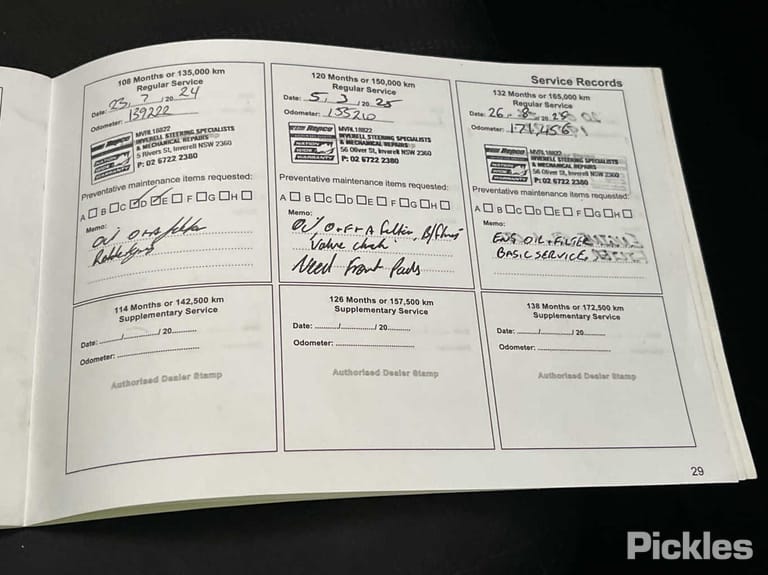 Service Records
108 Months or 135,000 km
Regular Service
Date: 23 / 7 / 20 24
Odometer: 139222
Repco
NATION WIDE WARRANTY
MVRL18822
INVERELL STEERING SPECIALISTS
& MECHANICAL REPAIRS
5 Rivers St, Inverell NSW 2360
P: 02 6722 2380
Preventative maintenance items requested:
A B C D E F G H
Memo:
120 Months or 150,000 km
Regular Service
Date: 5 / 3 / 20 25
Odometer: 155210
Repco
NATION WIDE WARRANTY
MVRL18822
INVERELL STEERING SPECIALISTS
& MECHANICAL REPAIRS
56 Oliver St, Inverell NSW 2360
P: 02 6722 2380
Preventative maintenance items requested:
A B C D E F G H
Memo:
Need Front Pads
132 Months or 165,000 km
Regular Service
Date: 26 / 8 / 20
Odometer:
Repco
NATION WIDE WARRANTY
MVRL18822
INVERELL STEERING SPECIALISTS
& MECHANICAL REPAIRS
56 Oliver St, Inverell NSW 2360
P: 02 6722 2380
Preventative maintenance items requested:
A B C D E F G H
Memo:
ENG OIL + FILTER
BASIC SERVICE
114 Months or 142,500 km
Supplementary Service
Date: ........./........./ 20.........
Odometer:
Authorised Dealer Stamp
126 Months or 157,500 km
Supplementary Service
Date: ........./........./ 20.........
Odometer:
Authorised Dealer Stamp
138 Months or 172,500 km
Supplementary Service
Date: ........./........./ 20.........
Odometer:
Authorised Dealer Stamp
29
Pickles